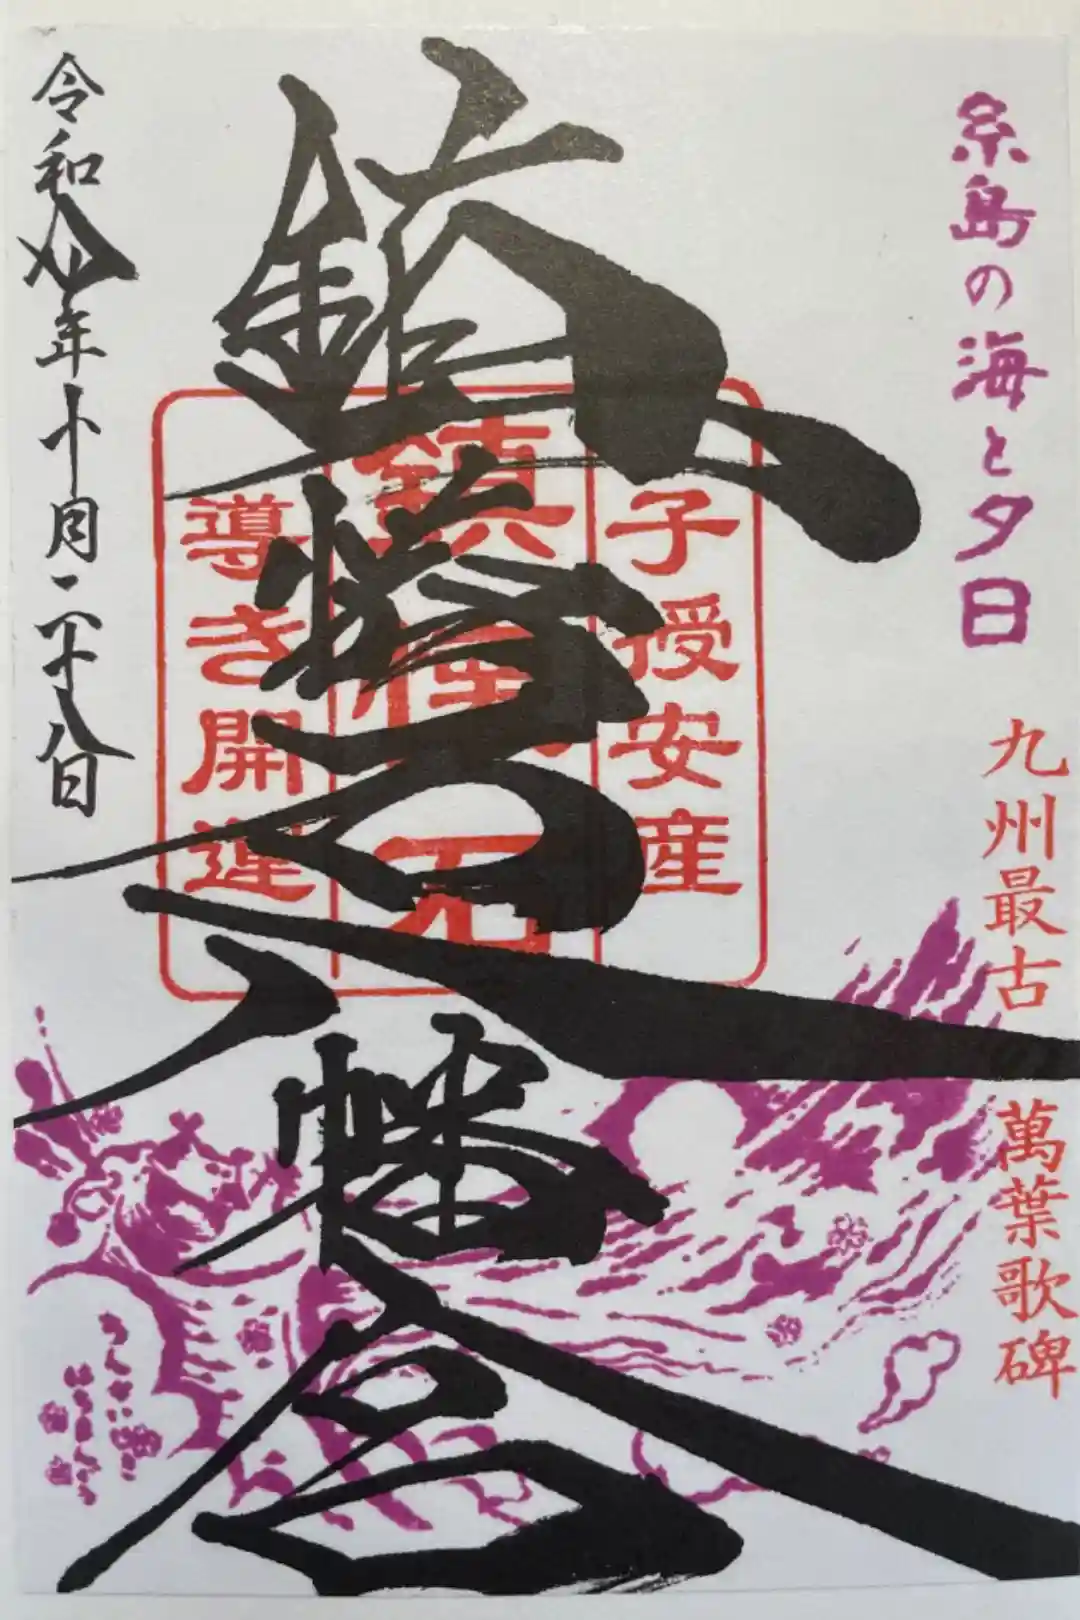 糸島の海と夕日
九州最古
萬葉歌碑
子授安産
鎮懐石
導き開運
鎮懐石八幡宮
令和年十月二十八日